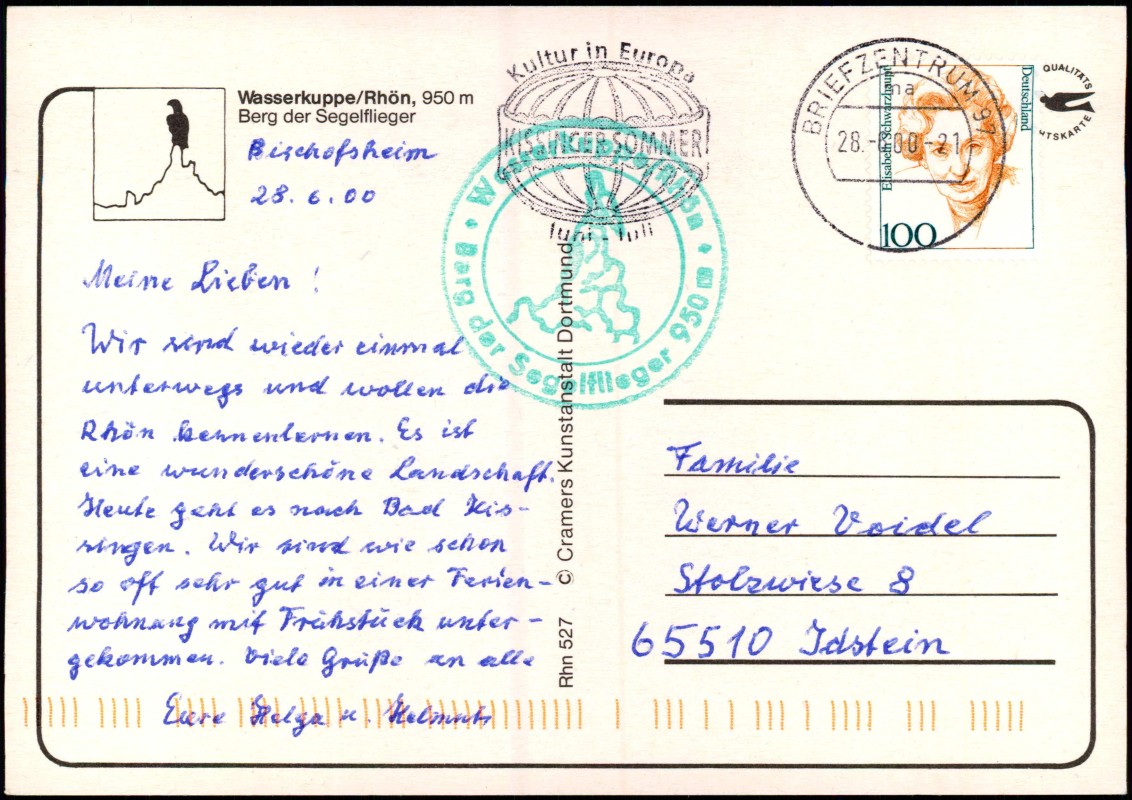 Wasserkuppe/Rhön, 950 m
Berg der Segelflieger
Bischofsheim
28. 6. 00
Meine Lieben!
Wir sind wieder einmal
unterwegs und wollen die
Rhön kennenlernen. Es ist
eine wunderschöne Landschaft.
Heute geht es nach Bad Kis-
singen. Wir sind wie schon
so oft sehr gut in einer Ferien-
wohnung mit Frühstück unter-
gekommen. Viele Grüße an alle
Eure Helga u. Helmut
Kultur in Europa
KISSINGER SOMMER
Juni - Juli
Wasserkuppe/Rhön
Berg der Segelflieger 950 m
Rhn 527 © Cramers Kunstanstalt Dortmund
BRIEFZENTRUM 97
na
28.-6.00-21
Elisabeth Schwarzhaupt
Deutschland
100
QUALITÄTS
Familie
Werner Voidel
Stolzwiese 8
65510 Idstein